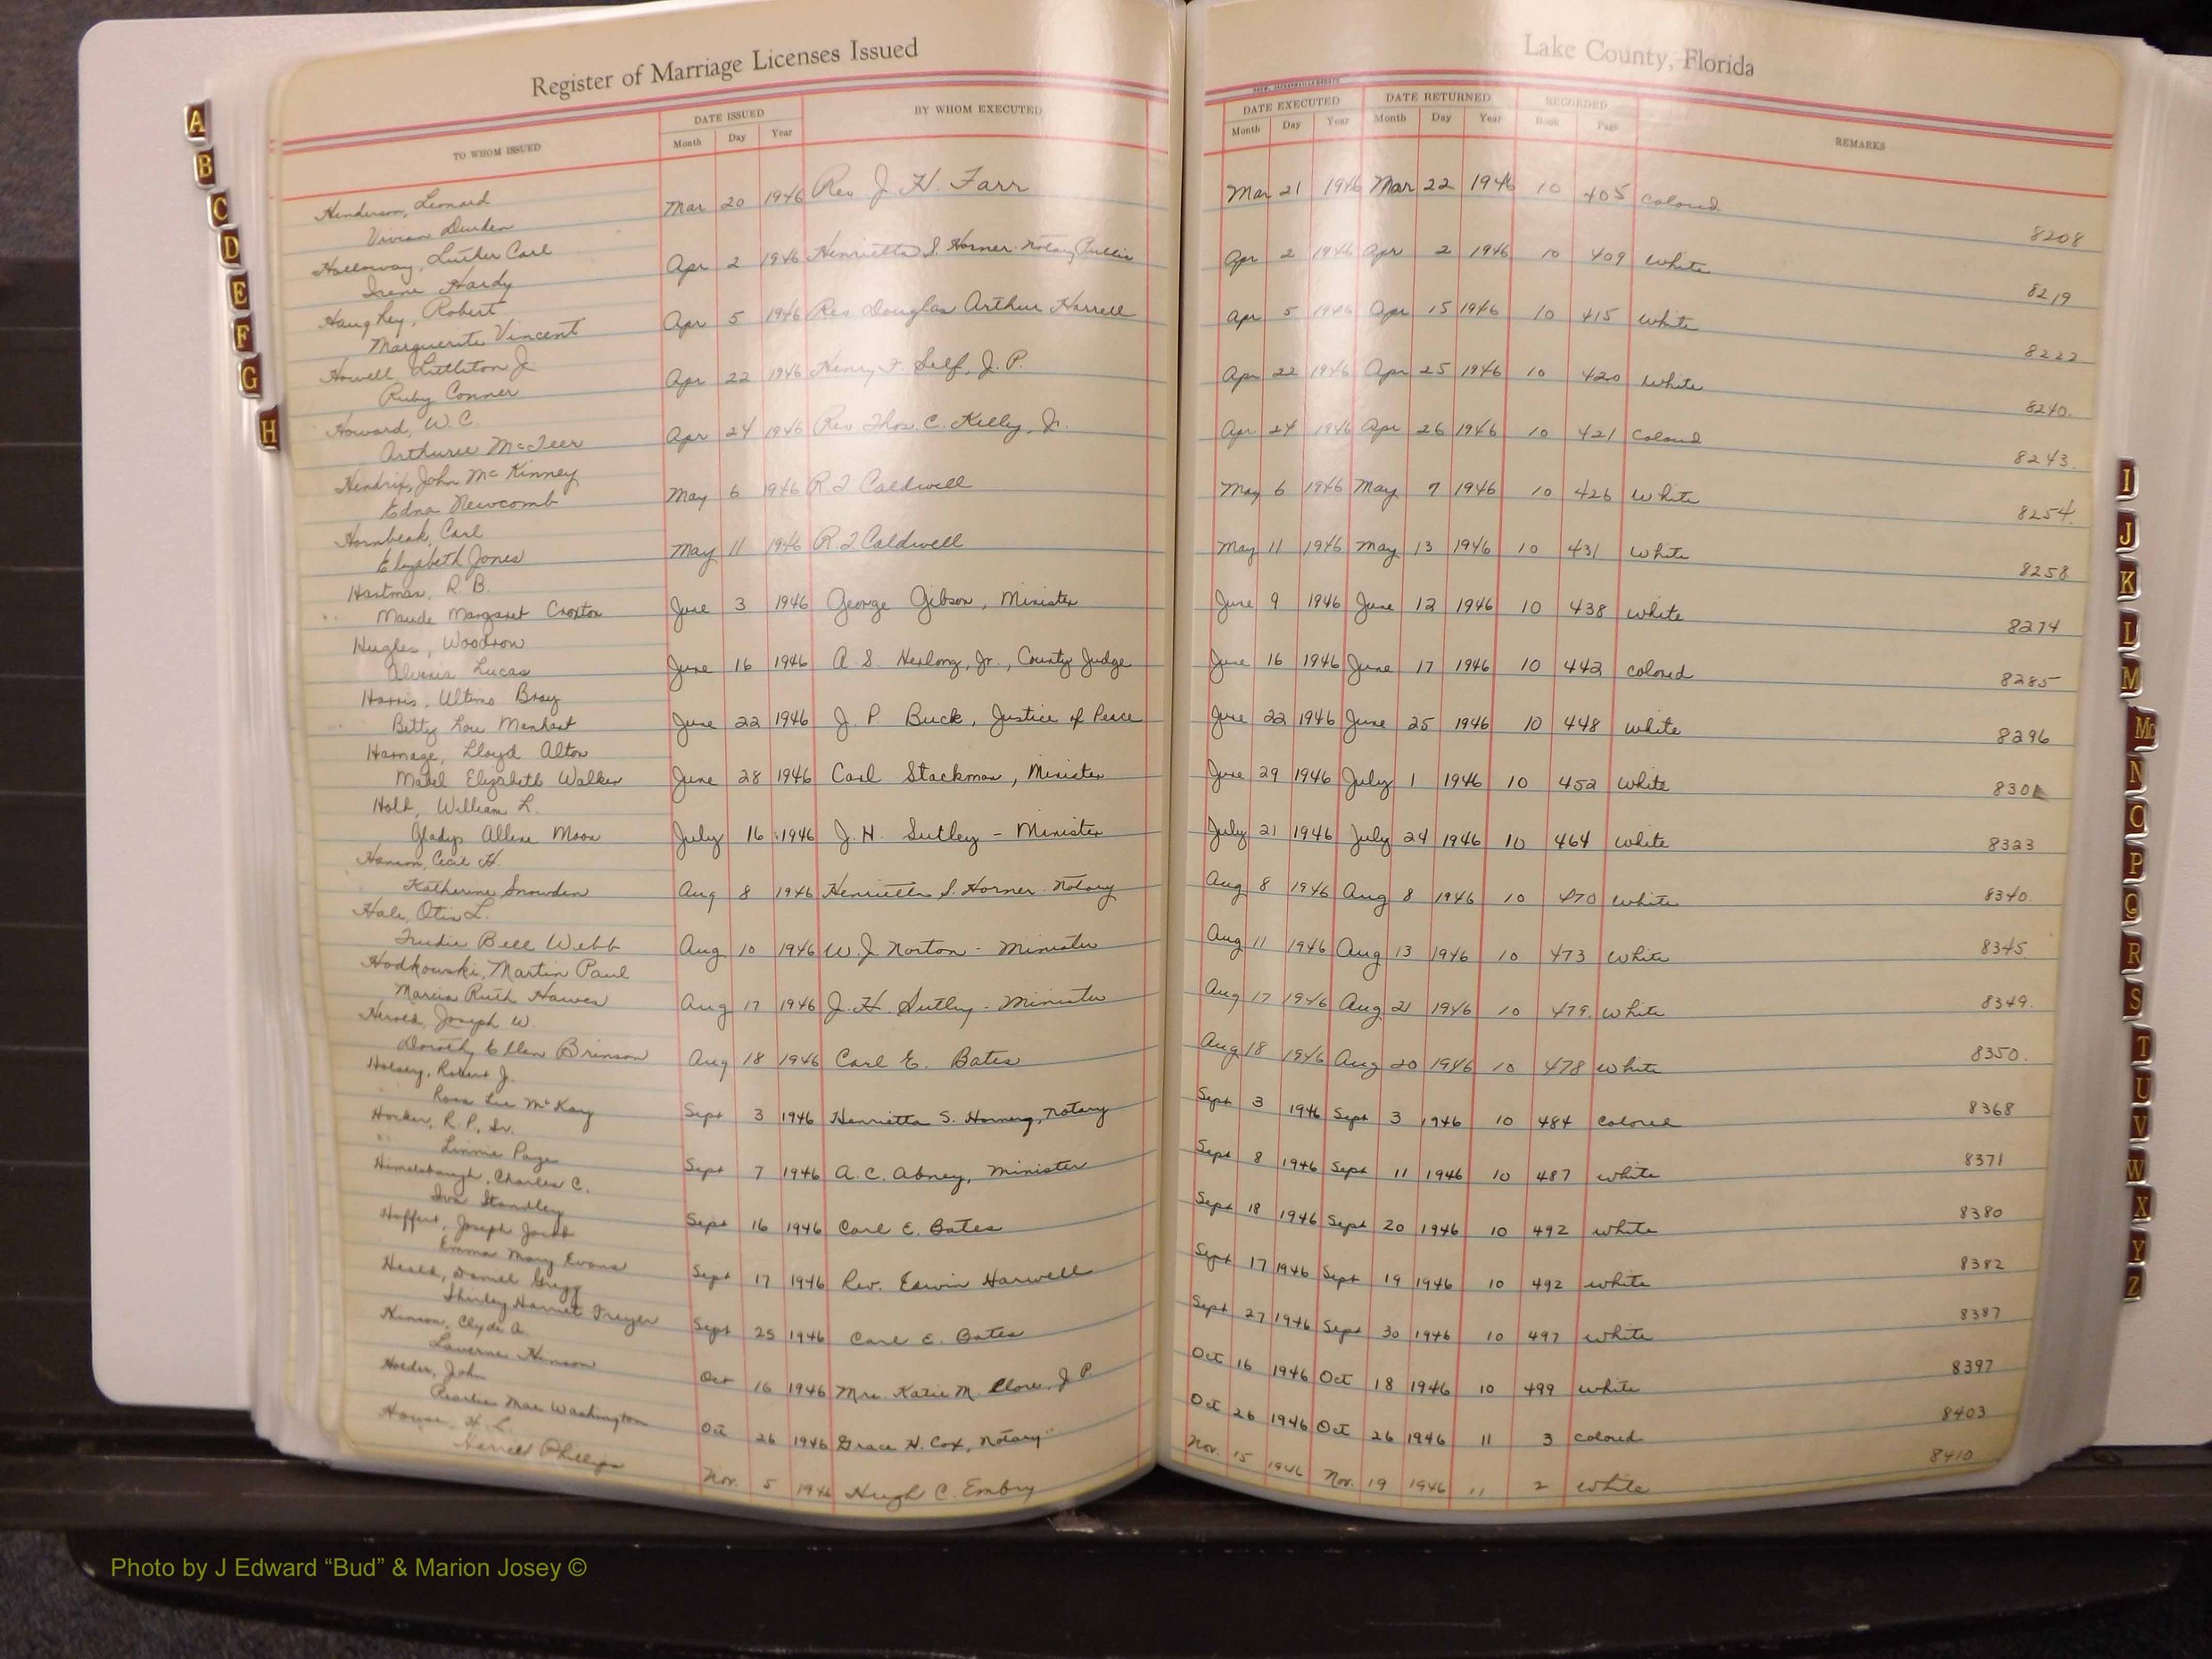 Register of Marriage Licenses Issued
Lake County, Florida
TO WHOM ISSUED
DATE ISSUED
Month Day Year
BY WHOM EXECUTED
DATE EXECUTED
Month Day Year
DATE RETURNED
Month Day Year
RECORDED
Book Page
REMARKS
Henderson, Leonard
Vivian Durden Mar 20 1946 Rev J. H. Farr Mar 21 1946 Mar 22 1946 10 405 colored 8208
Holloway, Luther Carl
Irene Hardy Apr 2 1946 Henrietta S. Horner Notary Public Apr 2 1946 Apr 2 1946 10 409 White 8219
Haughey, Robert
Marguerite Vincent Apr 5 1946 Rev. Douglas Arthur Harrell Apr 5 1946 Apr 15 1946 10 415 White 8222
Howell Littleton J.
Ruby Conner Apr 22 1946 Henry F. Self, J. P. Apr 22 1946 Apr 25 1946 10 420 White 8240.
Howard, W. C.
Arthuree McTeer Apr 24 1946 Rev. Thos. C. Kelly, Jr. Apr 24 1946 Apr 26 1946 10 421 Colored 8243.
Hendrix, John McKinney
Edna Newcomb May 6 1946 R J Caldwell May 6 1946 May 7 1946 10 426 White 8254.
Hornbeak, Carl
Elizabeth Jones May 11 1946 R. J Caldwell May 11 1946 May 13 1946 10 431 White 8258
Hartman, R. B.
Maude Margaret Croxton June 3 1946 George Gibson, Minister June 9 1946 June 12 1946 10 438 White 8274
Hugles, Woodrow
Lucas June 16 1946 A. S. Herlong, Jr., County Judge June 16 1946 June 17 1946 10 442 colored 8285
Harris, Ultimo Bray
Betty Lou Manhart June 22 1946 J. P Buck, Justice of Peace June 22 1946 June 25 1946 10 448 White 8296
Harnage, Lloyd Alton
Mabel Elizabeth Walker June 28 1946 Carl Stackman, Minister June 29 1946 July 1 1946 10 452 White 830
Holt, William L.
Gladys Allene Moon July 16 1946 J. H. Sutley - Minister July 21 1946 July 24 1946 10 464 White 8323
Hanson, Cecil H.
Katherine Snowden Aug 8 1946 Henrietta S. Horner Notary Aug 8 1946 Aug 8 1946 10 470 White 8340.
Hale, Otis L.
Trudie Bell Webb Aug 10 1946 W. J Norton - Minister Aug 11 1946 Aug 13 1946 10 473 White 8345
Hodkowski, Martin Paul
Marcia Ruth Hawes Aug 17 1946 J. H. Sutley - Minister Aug 17 1946 Aug 21 1946 10 479. White 8349.
Herold, Joseph W.
Dorothy Ellen Brinson Aug 18 1946 Carl E. Bates Aug 18 1946 Aug 20 1946 10 478 White 8350.
Halsey, Robert J.
Rosa Lee McKay Sept 3 1946 Henrietta S. Notary Sept 3 1946 Sept 3 1946 10 484 Colored 8368
Hocker, R. P., Sr.
Linnie Page Sept 7 1946 A. C. Abney, Minister Sept 8 1946 Sept 11 1946 10 487 white 8371
Himelsbaugh, Charles C.
Iva Standley Sept 16 1946 Carl E. Bates Sept 18 1946 Sept 20 1946 10 492 white 8380
Hoffert, Joseph Jacob
Emma Mary Evans Sept 17 1946 Rev. Edwin Harwell Sept 17 1946 Sept 19 1946 10 492 white 8382
Heald, Daniel Gregg
Shirley Harriet Freyer Sept 25 1946 Carl E. Bates Sept 27 1946 Sept 30 1946 10 497 white 8387
Hinson, Clyde A.
Laverne Hinson Oct 16 1946 Mrs. Katie M. J P. Oct 16 1946 Oct 18 1946 10 499 white 8397
Holder, John
Pearlie Mae Washington Oct 26 1946 Grace H. Cox, Notary Oct 26 1946 Oct 26 1946 11 3 colored 8403
House, H. L.
Harriett Phillips Nov. 5 1946 Hugh C. Embry Nov. 15 1946 Nov. 19 1946 11 2 white 8410
A
B
C
D
E
F
G
H
I
J
K
L
M
Mc
N
O
P
Q
R
S
T
U
V
W
X
Y
Z
Photo by J Edward “Bud” & Marion Josey ©